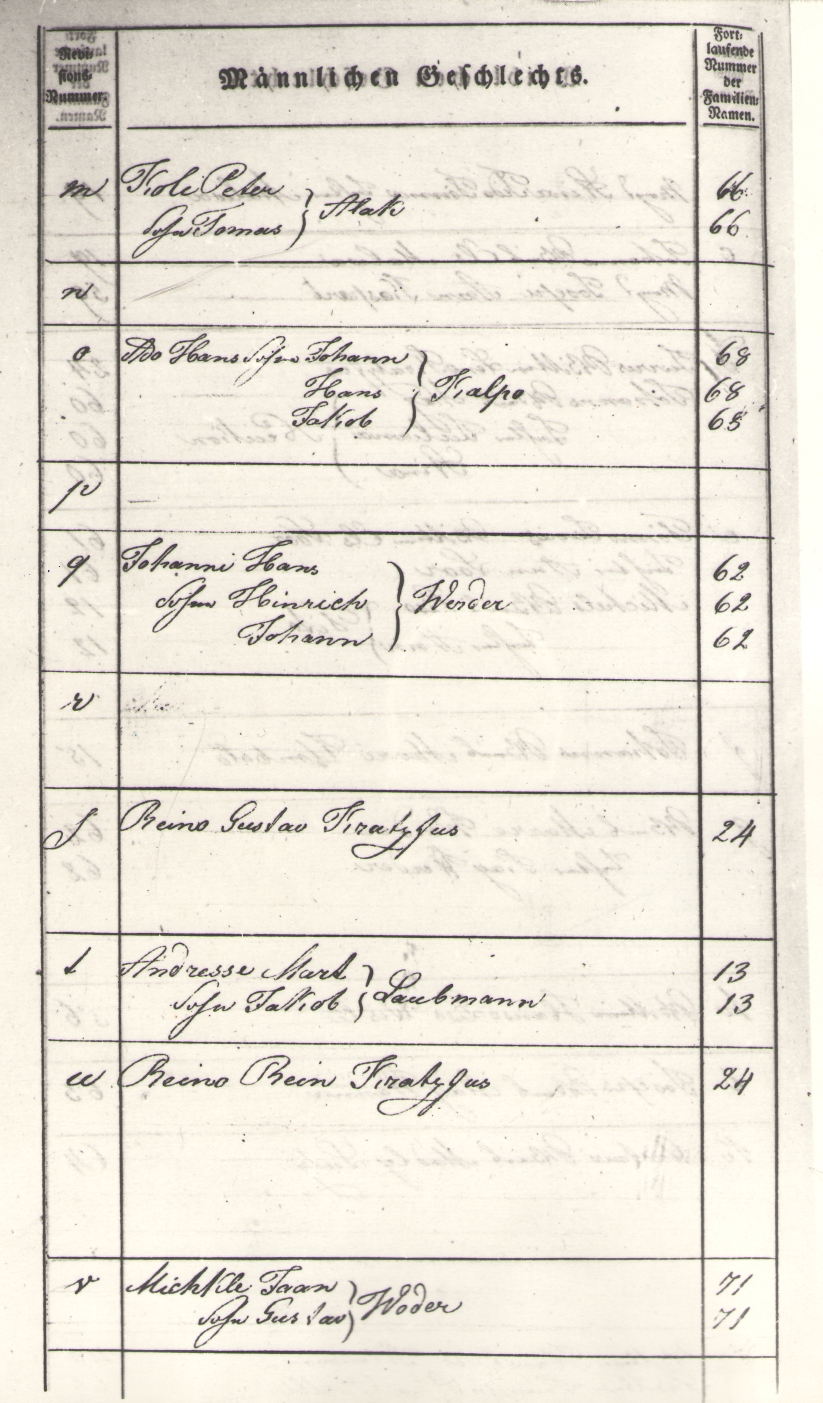 Revi-
sions-
Nummer.
Männlichen Geschlechts.
Fort-
laufende
Nummer
der
Familien-
Namen.
m Tioli Peter 66
Sohn Tomas } Alak 66
n
o Ado Hans Sohn Johann 68
Hans } Kalpo 68
Jakob 68
p
q Johanni Hans 62
Sohn Hinrich } Werder 62
Johann 62
r
s Reino Gustav 24
t Andresse Mart 13
Sohn Jakob } Laubmann 13
u Reino Rein 24
v Michkle Jaan 71
Sohn Gustav } Woder 71